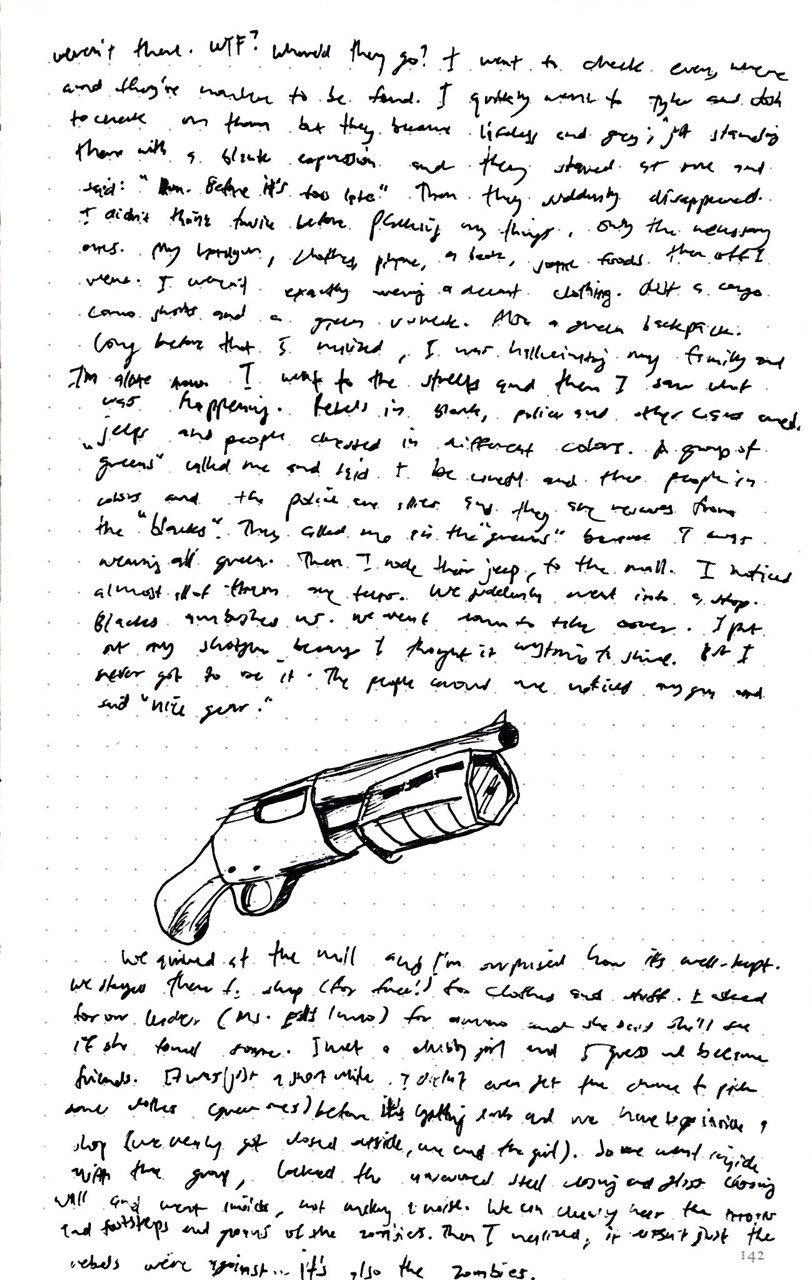 weren't there. WTF? Where'd they go? I went to check everywhere
and they're nowhere to be found. I quickly went to Tyler and
to check on them but they became lifeless and grey; just standing
there with a blank expression and they stared at me and
said: "Run. Before it's too late" Then they suddenly disappeared.
I didn't think twice before packing my things, only the necessary
ones. My handgun, clothes, phone, a book, some foods. then off I
went. I weren't exactly wearing a decent clothing. Just a cargo
camo shorts and a green v-neck. Also a green backpack.
Long before that I realized, I was hallucinating my family and
I'm alone now. I went to the streets and then I saw what
was happening. Rebels in black, police and other
jeeps and people dressed in different colors. A group of
"greens" called me and said to be careful and the people in
colors and the police are allies and they are rescuers from
the "blacks". They called me in the "greens" because I was
wearing all green. Then I rode their jeep, to the mall. I noticed
almost all of them are teens. We suddenly went into a stop.
Blacks ambushed us. We went down to take cover. I put
out my shotgun because I thought it my time to shine. But I
never got to use it. The people around me noticed my gun and
said "nice gear."
We arrived at the mall and I'm surprised how it's well-kept.
We stayed there to shop (for free!) for clothes and stuff. I asked
for our leader (Ms. ) for ammo and she said she'll see
if she found some. I met a chubby girl and I guess we became
friends. It was just a short while. I didn't even get the chance to pick
some clothes (green ones) before it's getting dark and we have to go inside a
shop (we nearly got closed outside, me and the girl). So we went inside
with the group, locked the steel closing and glass closing
wall and went inside, not making a noise. We can clearly hear the
and footsteps and groans of the zombies. Then I realized, it wasn't just the
rebels we're against... it's also the zombies.
142